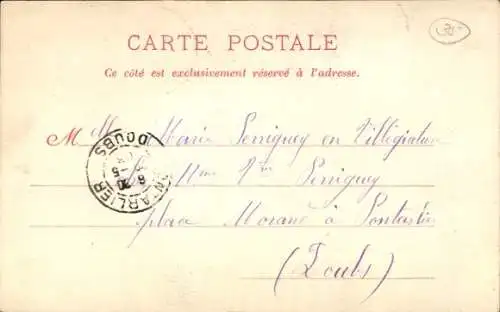 CARTE POSTALE
Ce côté est exclusivement réservé à l'adresse.
M lle Marie Perriguey en Villégiature
Mme Vve Perriguey
place Morand à Pontarlier
(Doubs)
PONTARLIER
DOUBS